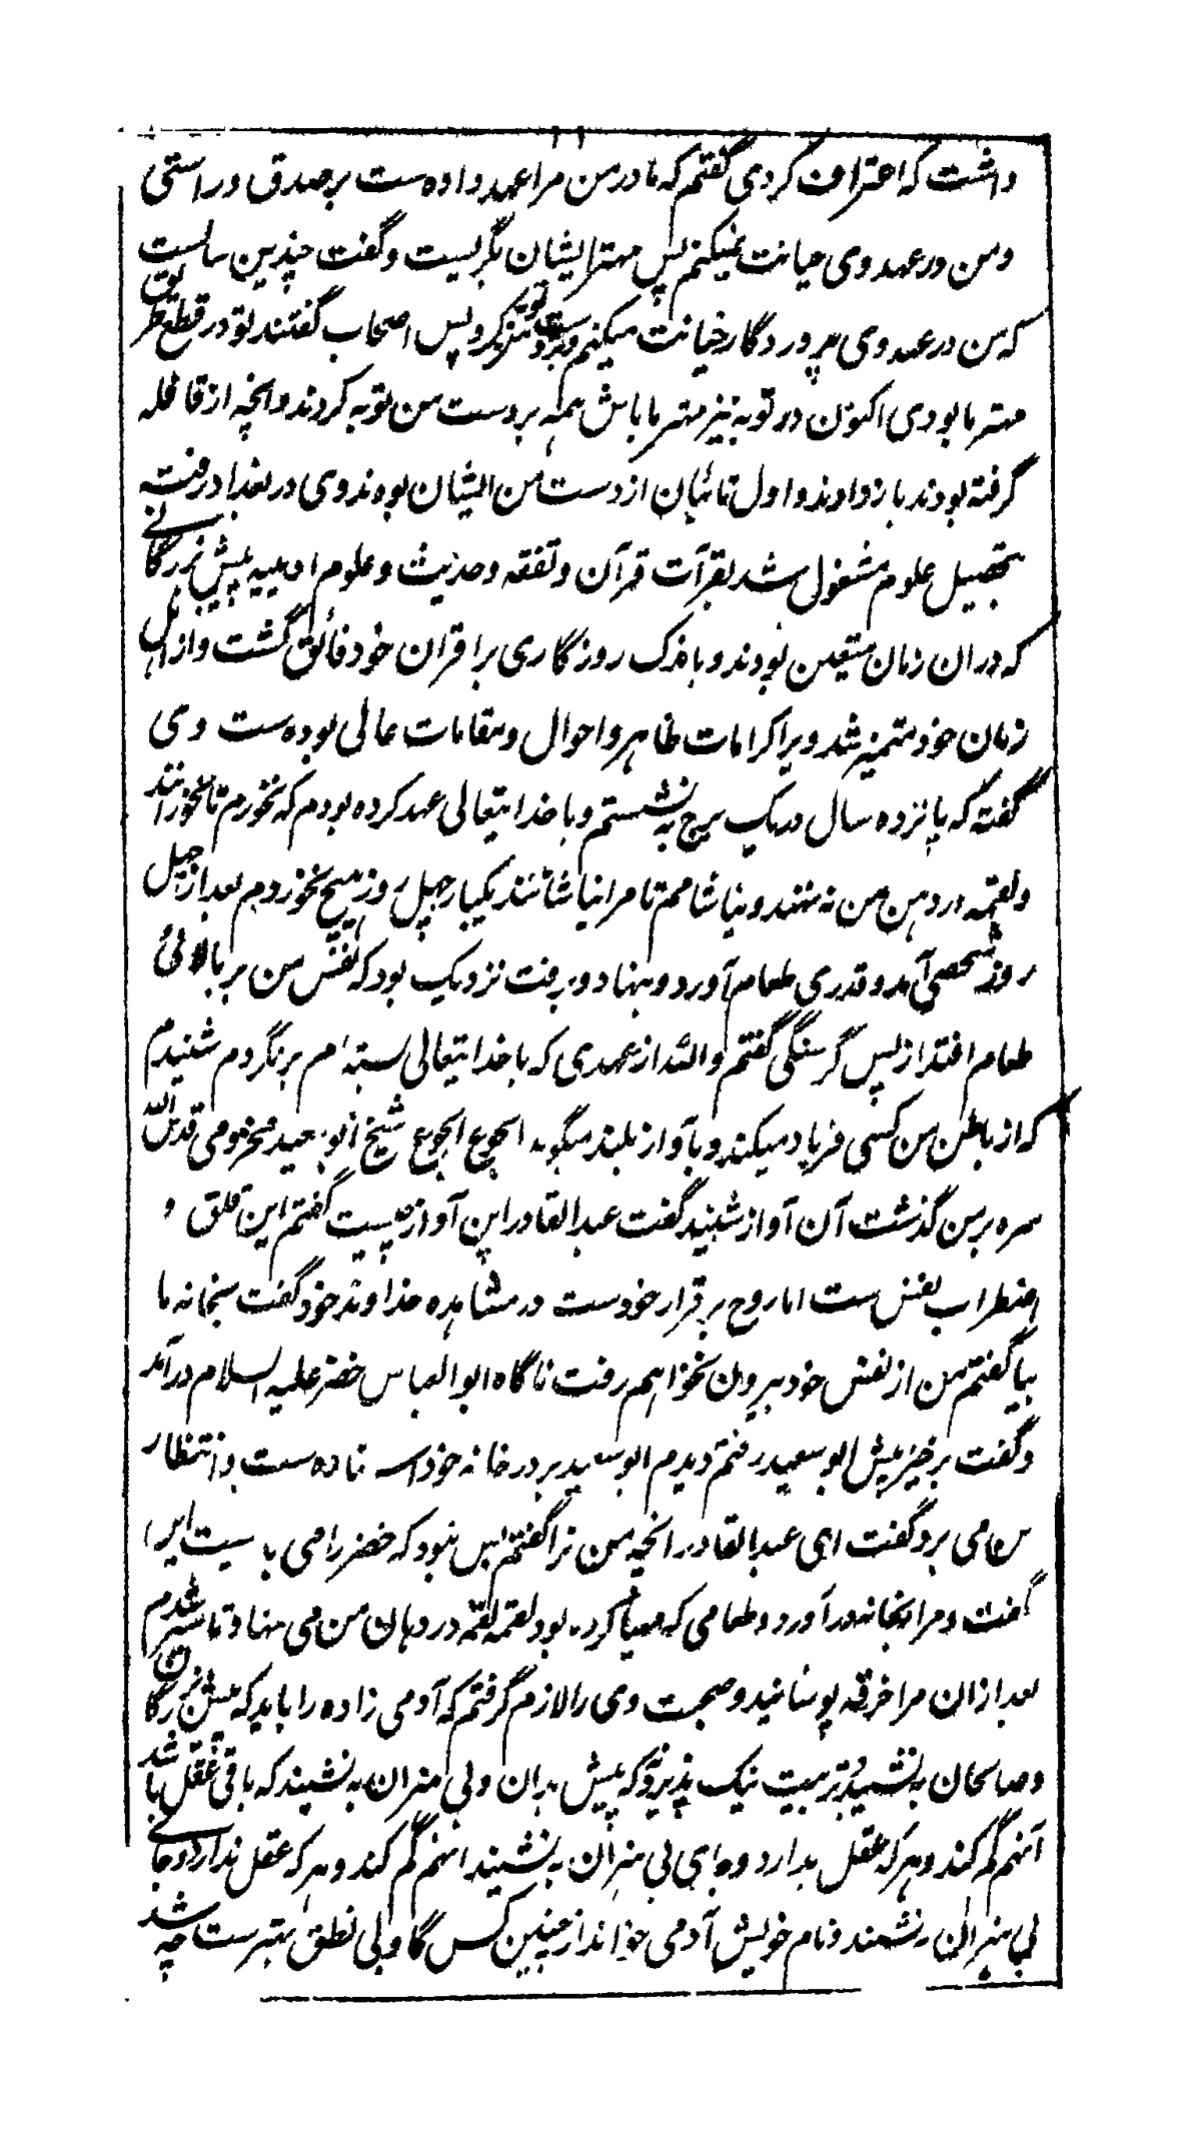 داشت که اعتراف کردی گفتم که مادر من مرا عهد داده است بر صدق و راستی
و من در عهد وی خیانت نمیکنم پس مهتر ایشان بگریست و گفت چندین سالست
که من در عهد وی پروردگار خیانت میکنم و بر دست من توبه کرد پس اصحاب گفتند تو در قطع طریق
مهتر ما بودی اکنون در توبه نیز مهتر ما باش همه بر دست من توبه کردند و انچه از قافله
گرفته بودند باز دادند و اول تائبان از دست من ایشان بودند وی در بغداد رفت
بتحصیل علوم مشغول شد بقرآت قرآن و تفقه و حدیث و علوم ادبییه پیش بزرگانے
که دران زمان متعین بودند و باندک روزگاری بر اقران خود فائق گشت و از اہل
زمان خود متمیز شد و یرا کرامات ظاہر و احوال و مقامات عالی بوده ست وی
گفته که پانزده سال در یک برج به نشستم و با خدایتعالی عهد کرده بودم که نخورم تا نخورانند
و لقمه در دہن من نه نهند و نیاشامم تا مرا نیاشانند یکبار چہل روز ہیچ نخوردم بعد از چہل
روز شخصی آمد و قدری طعام آورد و بنهاد و برفت نزدیک بود که نفس من بر بالائ
طعام افتد از پس گرسنگی گفتم والله از عهدی که با خدایتعالی بسته ام برنگردم شنیدم
که از باطن من کسی فریاد میکند و بآواز بلند میگوید الجوع الجوع شیخ ابو سعید مخزومی قدس الله
سره بر من گذشت آن آواز شنید گفت عبدالقادر این آواز چیست گفتم این قلق و
اضطراب نفس ست اما روح بر قرار خودست در مشاہده خداوند خود گفت بخانه ما
بیا گفتم من از نفس خود بیرون نخواہم رفت ناگاه ابو العباس خضر علیه السلام درآمد
و گفت برخیز پیش ابو سعید رفتم دیدم ابو سعید بر در خانه خود استاده ست و انتظار
من می برد گفت ای عبدالقادر انچه من ترا گفتم بس نبود که خضر را می بایست این را
گفت و مرا بخانه درآورد و طعامی که مهیا کرده بود لقمه لقمه در دہان من می نهاد تا سیر شدم
بعد ازان مرا خرقه پوشانید و صحبت وی را لازم گرفتم که آدمی زاده را باید که پیش بزرگان
و صالحان به نشیند و تربیت نیک پذیرد نه که پیش بدان و بی هنران به نشیند که باقی عقل باشد
آنهم گم کند و ہر که عقل ندارد و جای بی ہنران به نشیند انهم گم کند و ہر که عقل ندارد و جائے
بی ہنران نشیند و نام خویش آدمی خواند از چنین کس گاو بی نطق بهترست چه شد